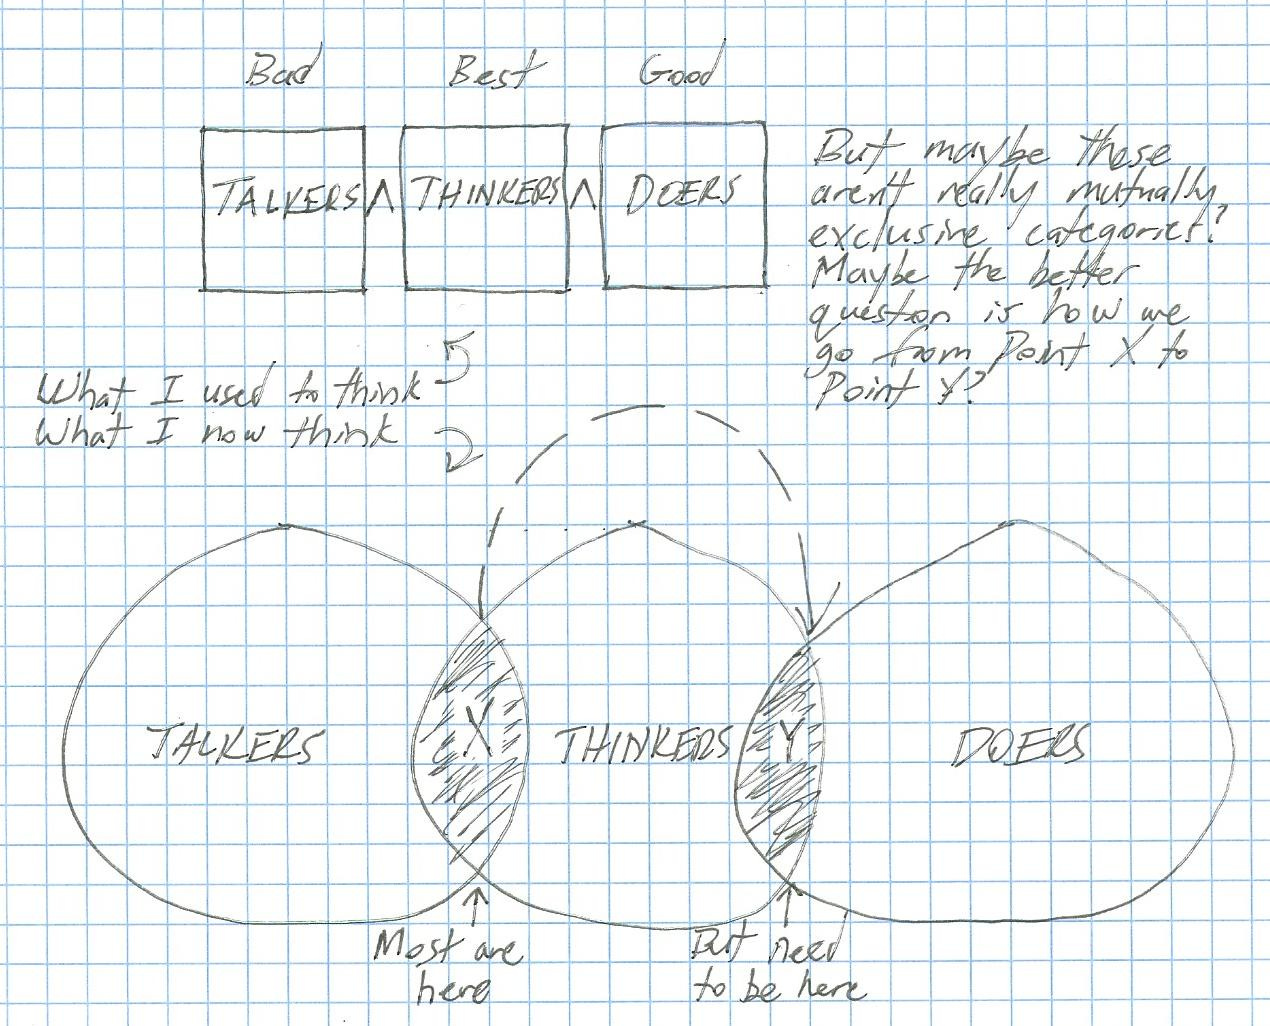 Bad Best Good
TALKERS ∧ THINKERS ∧ DOERS
But maybe these
aren't really mutually
exclusive categories?
Maybe the better
question is how we
go from Point X to
Point Y?
What I used to think
What I now think
TALKERS X THINKERS Y DOERS
Most are
here
But need
to be here